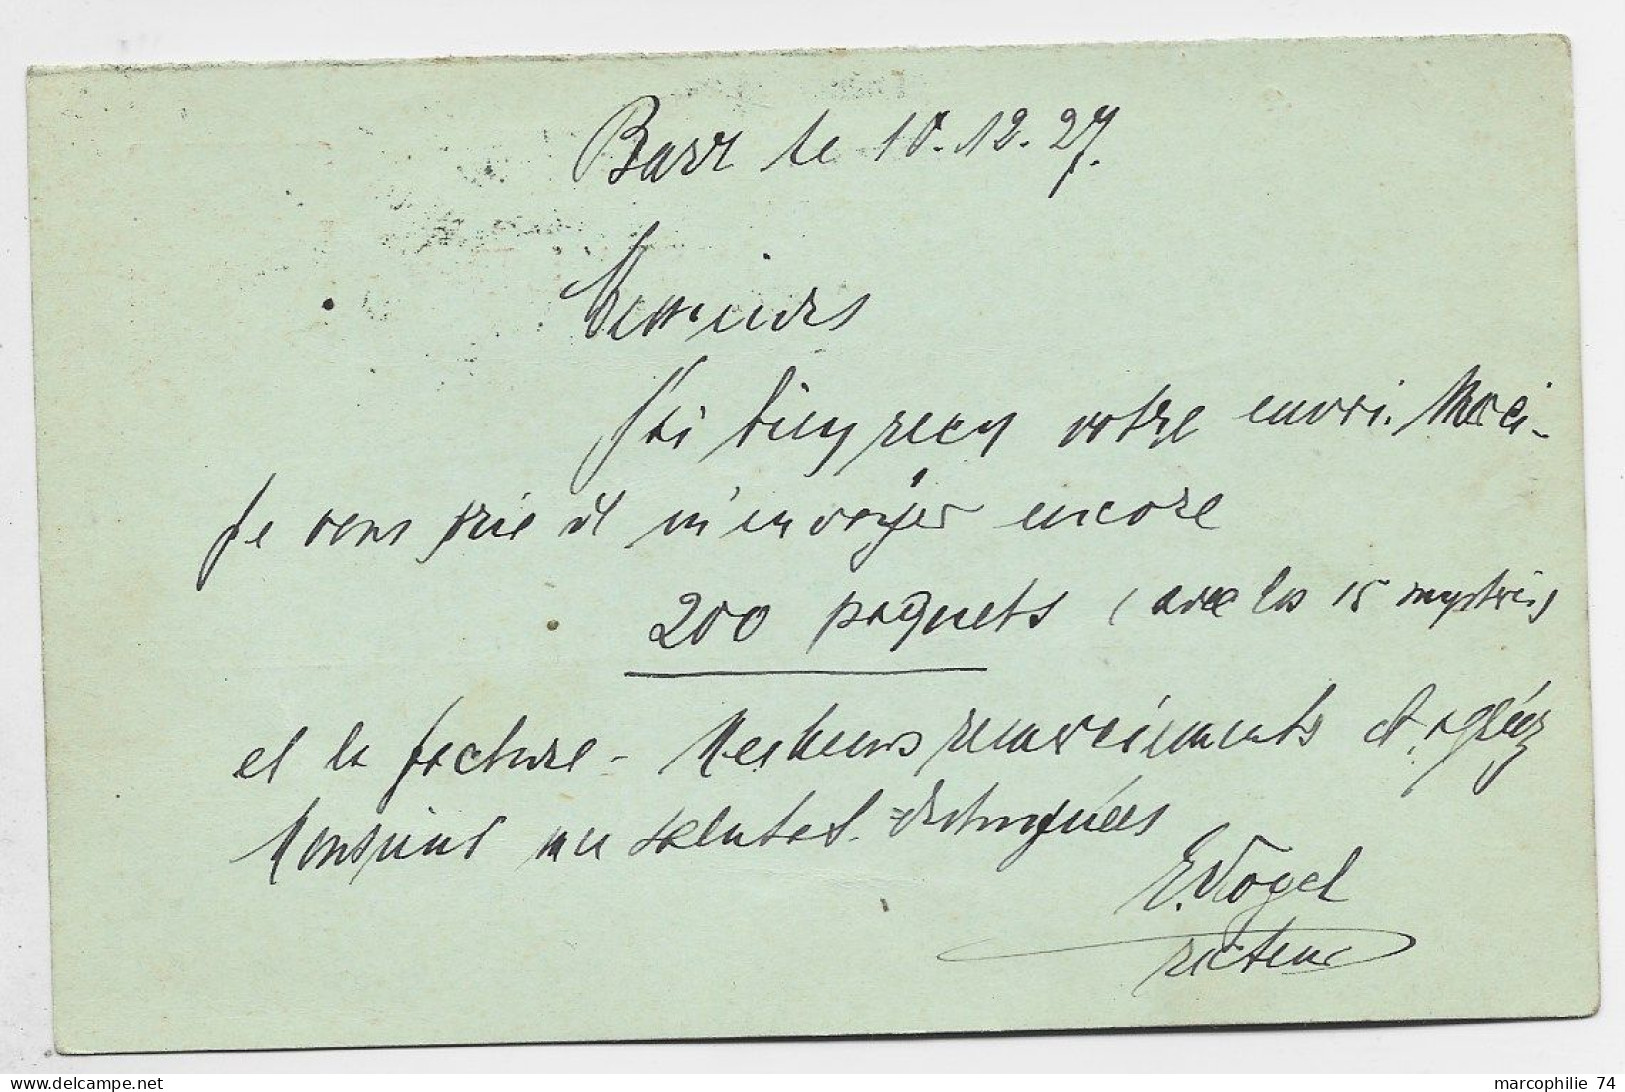 Barr le 10.12.27.
Messieurs
J'ai bien reçu votre envoi. Merci -
Je vous prie de m'envoyer encore
200 paquets (avec les 15 mystères)
et la facture - Meilleurs remerciements et agréez
Monsieur mes salutat. distinguées
E. Vogel
recteur
marcophilie 74